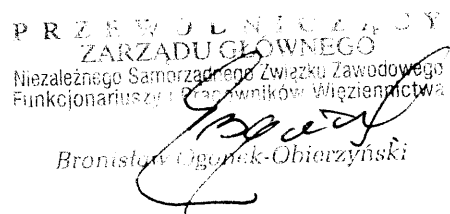 PRZEWODNICZĄCY
ZARZĄDU GŁÓWNEGO
Niezależnego Samorządnego Związku Zawodowego
Funkcjonariuszy i Pracowników Więziennictwa
Bronisław Ogonek-Obierzyński